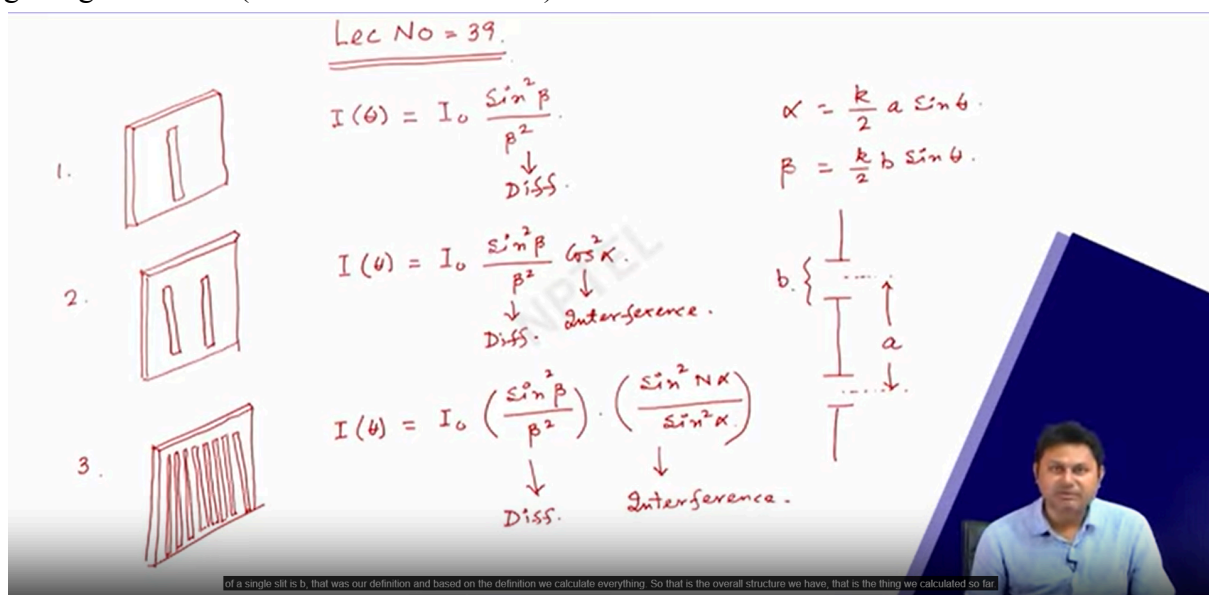 Lec No = 39.
1.
I(θ) = I₀ sin²β / β²
↓
Diff.
α = k/2 a sinθ.
β = k/2 b sinθ.
2.
I(θ) = I₀ sin²β / β² Cos²α.
↓ ↓
Diff. Interference.
b. {
a
3.
I(θ) = I₀ (sin²β / β²) · (sin²Nα / sin²α)
↓ ↓
Diff. Interference.
NPTEL
of a single slit is b, that was our definition and based on the definition we calculate everything. So that is the overall structure we have, that is the thing we calculated so far.